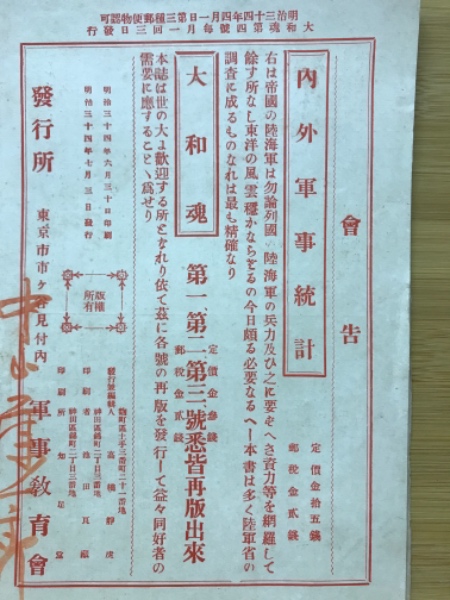 明治三十四年四月一日第三種郵便物認可
大和魂第四號每月一回三日發行
會告
內外軍事統計
定價金拾五錢
郵稅金貳錢
右は帝國の陸海軍は勿論列國の陸海軍の兵力及ひ之に要すへき資力等を網羅して
餘す所なし東洋の風雲穩かならさるの今日頗る必要なるへし本書は多く陸軍省の
調査に成るものなれは最も精確なり
大和魂
第一、第二、第三號悉皆再版出來
定價金參錢
郵稅金貳錢
本誌は世の大に歡迎する所となれり依て茲に各號の再版を發行して益々同好者の
需要に應することゝ爲せり
明治三十四年六月三十日印刷
明治三十四年七月三日發行
版權所有
麴町區土手三番町二十一番地
發行兼編輯人 高橋靜虎
神田區錦町二丁目三番地
印刷者
神田區錦町二丁目三番地
印刷所
發行所
東京市市ヶ谷見付內
軍事敎育會